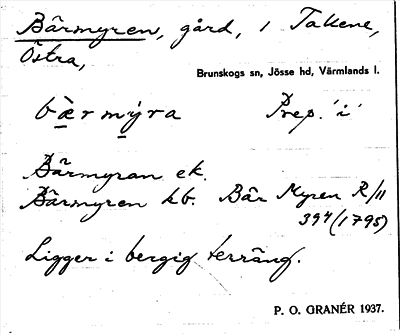 Bärmyren, gård, i Takene,
Östra,
Brunskogs sn, Jösse hd, Värmlands l.
bæ̀rmýra Prep. 'i'
Bärmyran ek.
Bärmyren kb. Bär Myren R/11
394 (1795)
Ligger i bergig terräng.
P. O. GRANÉR 1937.